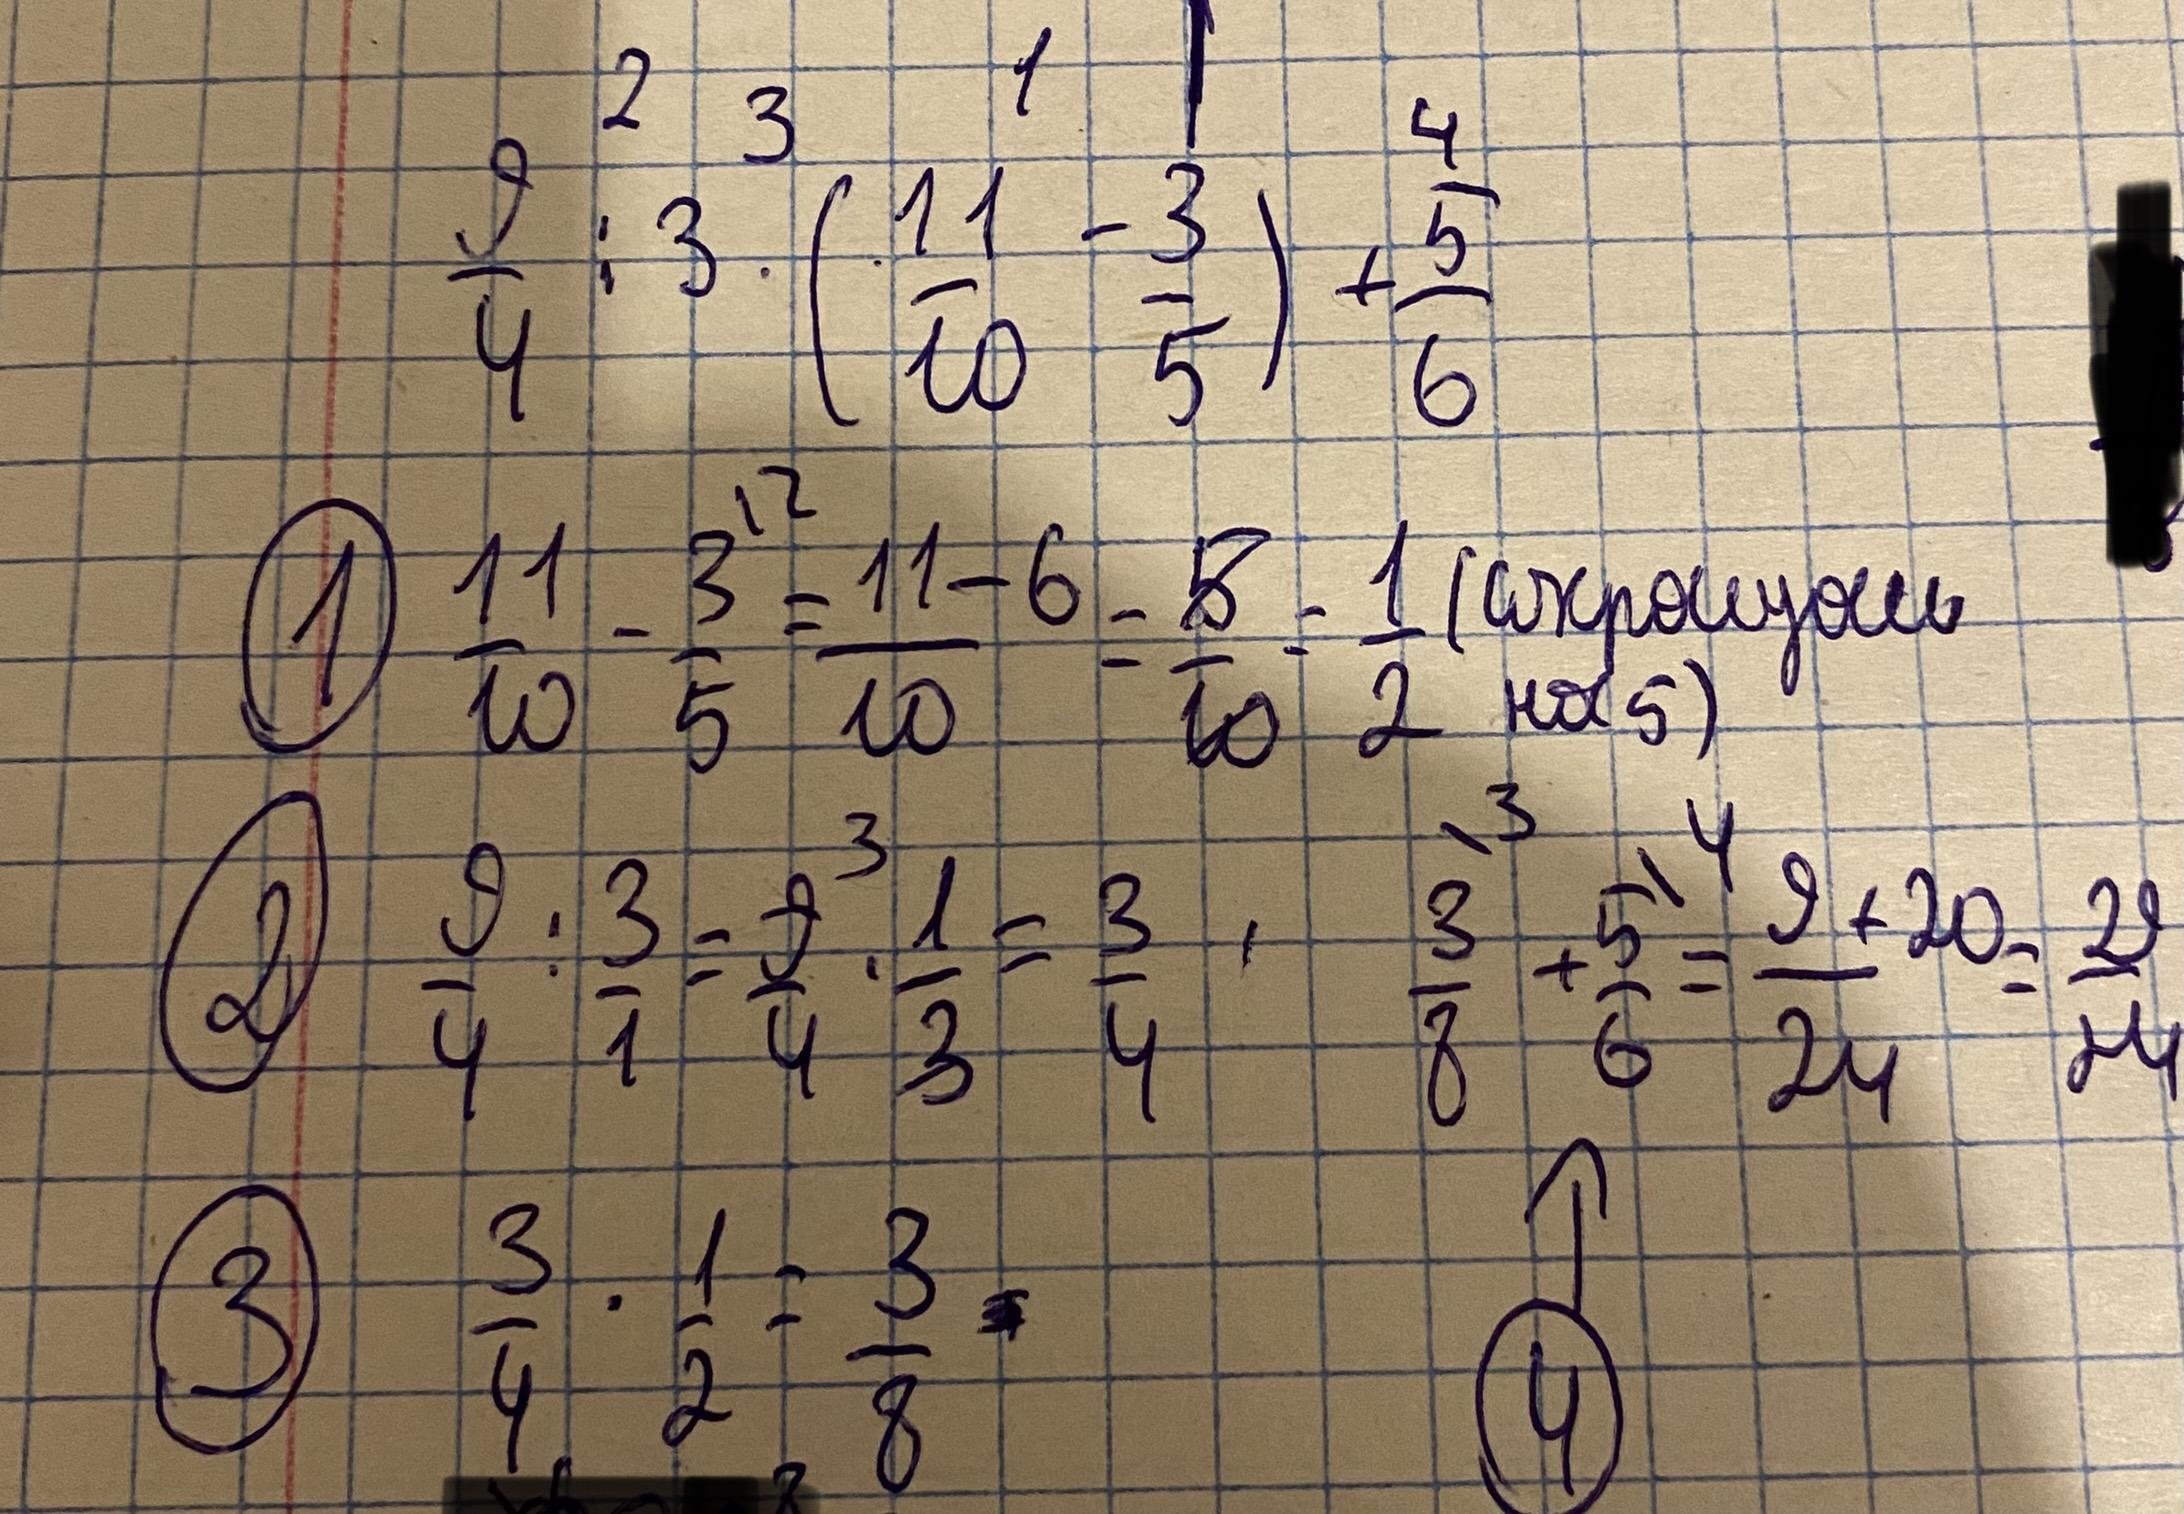 2 3 1 4
9/4 : 3 · (11/10 - 3/5) + 5/6
① 11/10 - 3/5\2 = 11-6/10 = 5/10 = 1/2 (сокращаем
на 5)
② 9/4 : 3/1 = 9/4 3 · 1/3 = 3/4
3/8\3 + 5/6\4 = 9+20/24 = 29/24
③ 3/4 · 1/2 = 3/8
④